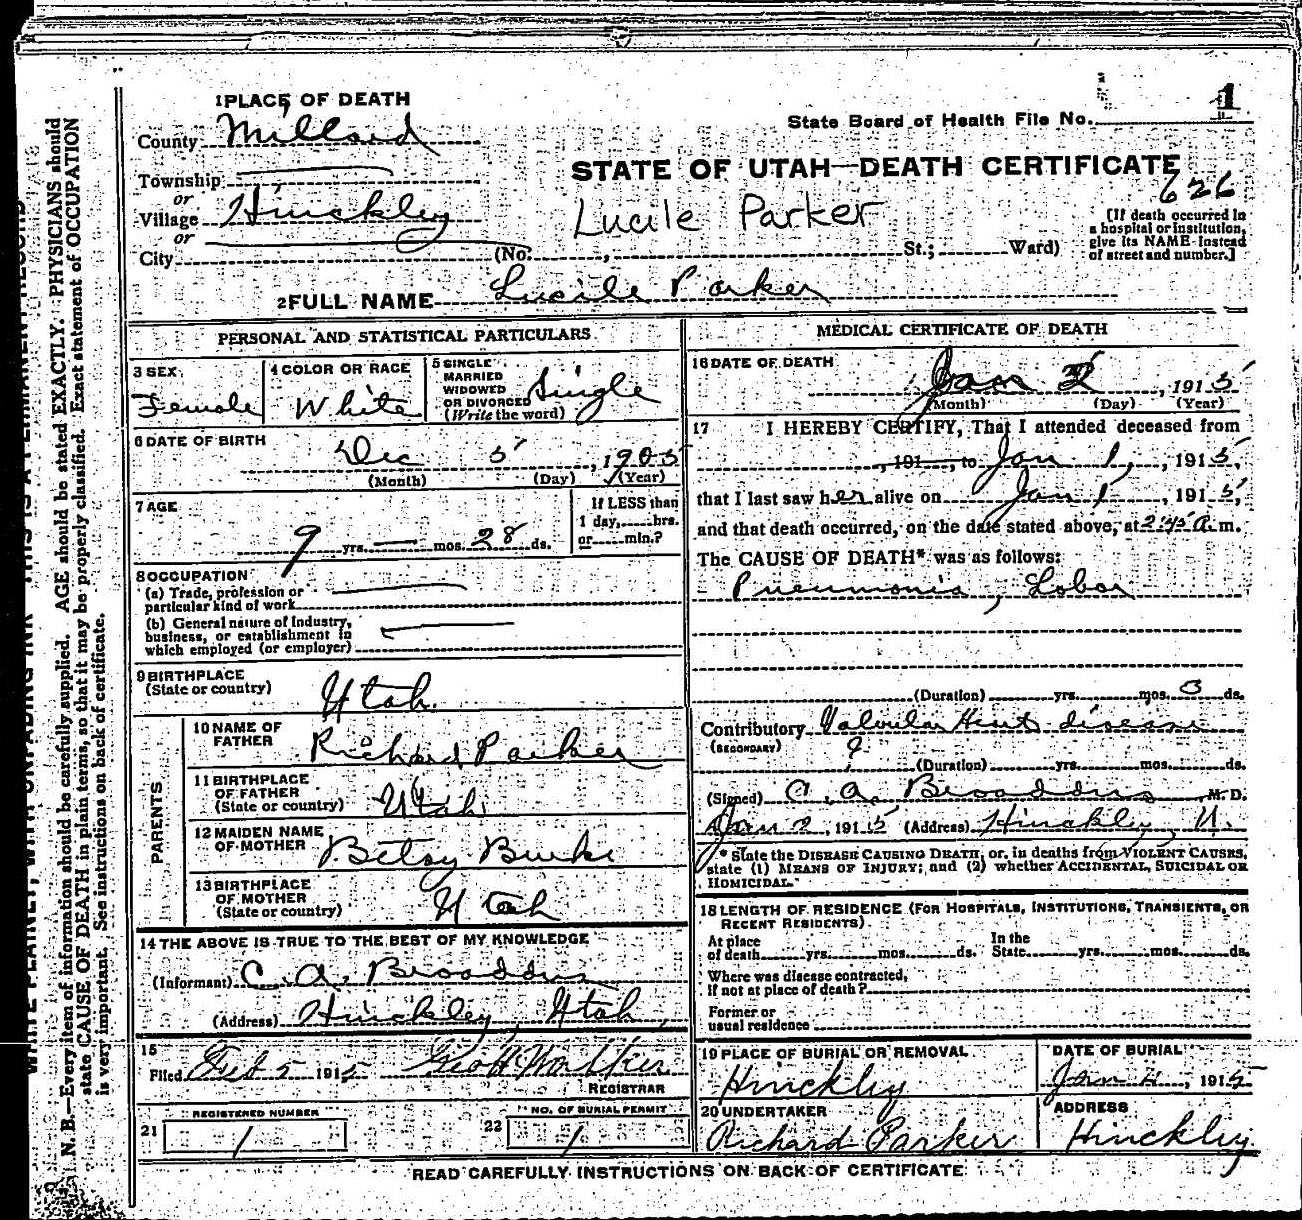 1
State Board of Health File No.
1 PLACE OF DEATH
County Millard
Township
or
Village Hinckley
or
City (No. , St.; Ward)
STATE OF UTAH—DEATH CERTIFICATE
626
Lucile Parker
[If death occurred in
a hospital or institution,
give its NAME instead
of street and number.]
2 FULL NAME Lucile Parker
PERSONAL AND STATISTICAL PARTICULARS
3 SEX
Female
4 COLOR OR RACE
White
5 SINGLE
MARRIED
WIDOWED
OR DIVORCED
(Write the word)
Single
6 DATE OF BIRTH
Dec 5, 1905
(Month) (Day) (Year)
7 AGE
9 yrs. — mos. 28 ds.
If LESS than
1 day, hrs.
or min.?
8 OCCUPATION
(a) Trade, profession or
particular kind of work
(b) General nature of Industry,
business, or establishment in
which employed (or employer)
9 BIRTHPLACE
(State or country)
Utah.
PARENTS
10 NAME OF
FATHER
Richard Parker
11 BIRTHPLACE
OF FATHER
(State or country)
Utah
12 MAIDEN NAME
OF MOTHER
Betsy Burke
13 BIRTHPLACE
OF MOTHER
(State or country)
Utah
14 THE ABOVE IS TRUE TO THE BEST OF MY KNOWLEDGE
(Informant) C. A. Broaddus
(Address) Hinckley, Utah,
15
Filed Feb 5 1915
REGISTRAR
REGISTERED NUMBER
21 1
NO. OF BURIAL PERMIT
22 1
MEDICAL CERTIFICATE OF DEATH
16 DATE OF DEATH
Jan 2, 1915
(Month) (Day) (Year)
17 I HEREBY CERTIFY, That I attended deceased from
, 191 , to Jan 1, , 1915,
that I last saw her alive on Jan 1, 1915,
and that death occurred, on the date stated above, at 2:45 A. m.
The CAUSE OF DEATH* was as follows:
Pneumonia, Lobar
(Duration) yrs. mos. 3 ds.
Contributory Valvular Heart disease
(SECONDARY) ?
(Duration) yrs. mos. ds.
(Signed) C. A. Broaddus M. D.
Jan 2, 1915 (Address) Hinckley, U.
* State the DISEASE CAUSING DEATH, or, in deaths from VIOLENT CAUSES,
state (1) MEANS OF INJURY; and (2) whether ACCIDENTAL, SUICIDAL OR
HOMICIDAL.
18 LENGTH OF RESIDENCE (FOR HOSPITALS, INSTITUTIONS, TRANSIENTS, OR
RECENT RESIDENTS)
At place
of death yrs. mos. ds.
In the
State yrs. mos. ds.
Where was disease contracted,
If not at place of death?
Former or
usual residence
19 PLACE OF BURIAL OR REMOVAL
Hinckley
DATE OF BURIAL
Jan 4, 1915
20 UNDERTAKER
Richard Parker
ADDRESS
Hinckley
READ CAREFULLY INSTRUCTIONS ON BACK OF CERTIFICATE
N. B.—Every item of information should be carefully supplied. AGE should be stated EXACTLY. PHYSICIANS should
state CAUSE OF DEATH in plain terms, so that it may be properly classified. Exact statement of OCCUPATION
is very important. See instructions on back of certificate.